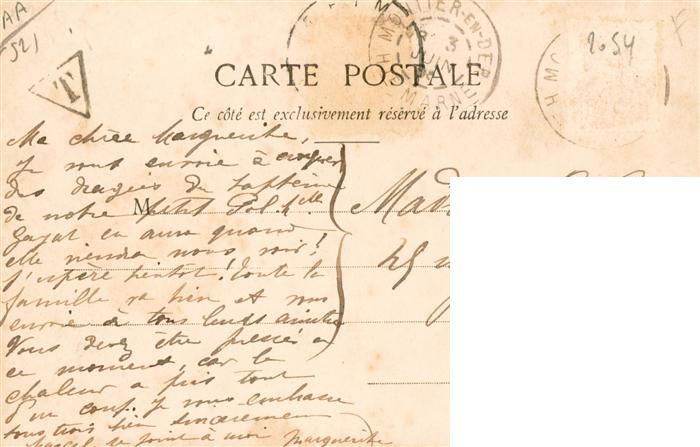 AA
52)
T
MONTIER-EN-DER
3
JUIN
MARNE
2054
F
CARTE POSTALE
Ce côté est exclusivement réservé à l'adresse
Ma chère Marguerite,
Je vous envoie à croquer
des dragées du baptême
de notre petit Pol. Melle
M
en aura quand
elle viendra nous voir!
J'espère bientôt! Toute la
famille va bien et vous
envoie à tous leurs amitiés
Vous devez être pressés en
ce moment, car la
chaleur a pris tout
d'un coup. Je vous embrasse
tous trois bien sincèrement
se joint à moi Marguerite
Mad
45